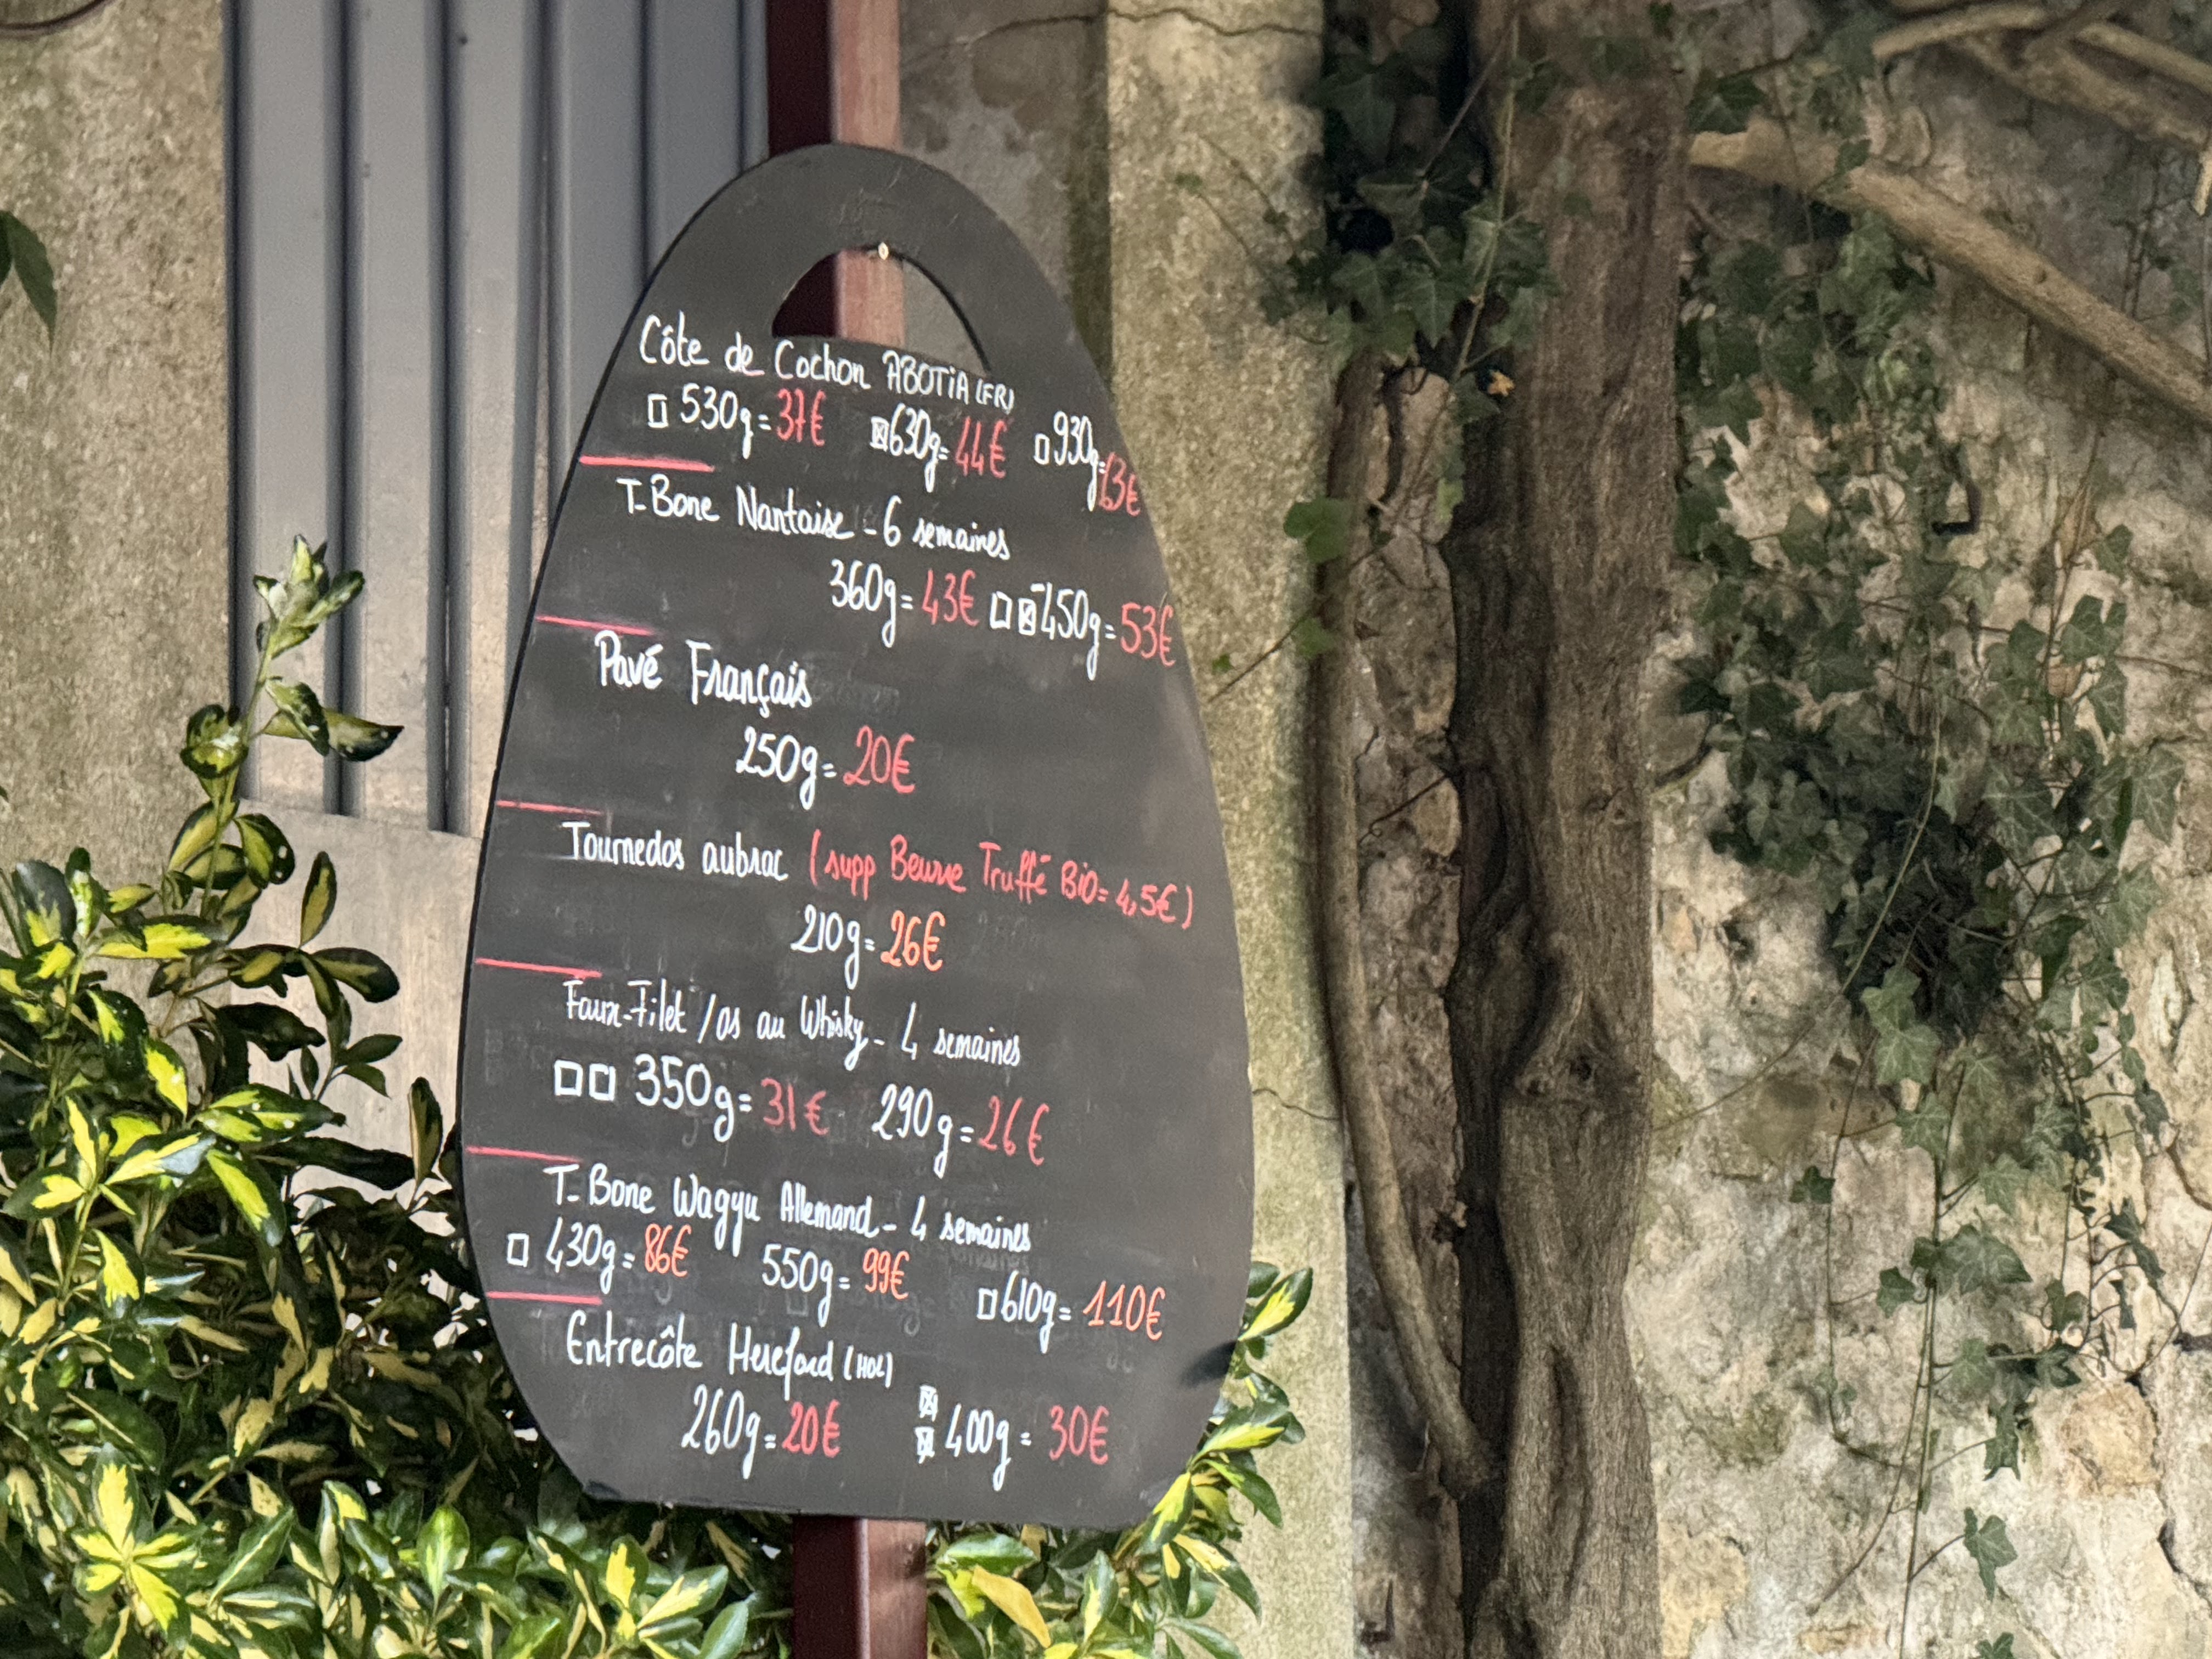 Côte de Cochon ABOTIA (FR)
530g=37€ 630g=44€ 930g=63€
T-Bone Nantaise - 6 semaines
360g=43€ 450g=53€
Pavé Français
250g=20€
Tournedos aubrac (supp Beurre Truffé BiO=4,5€)
210g=26€
Faux-Filet /os au Whisky - 4 semaines
350g=31€ 290g=26€
T-Bone Wagyu Allemand - 4 semaines
430g=86€ 550g=99€ 610g=110€
Entrecôte Hereford (HOL)
260g=20€ 400g=30€